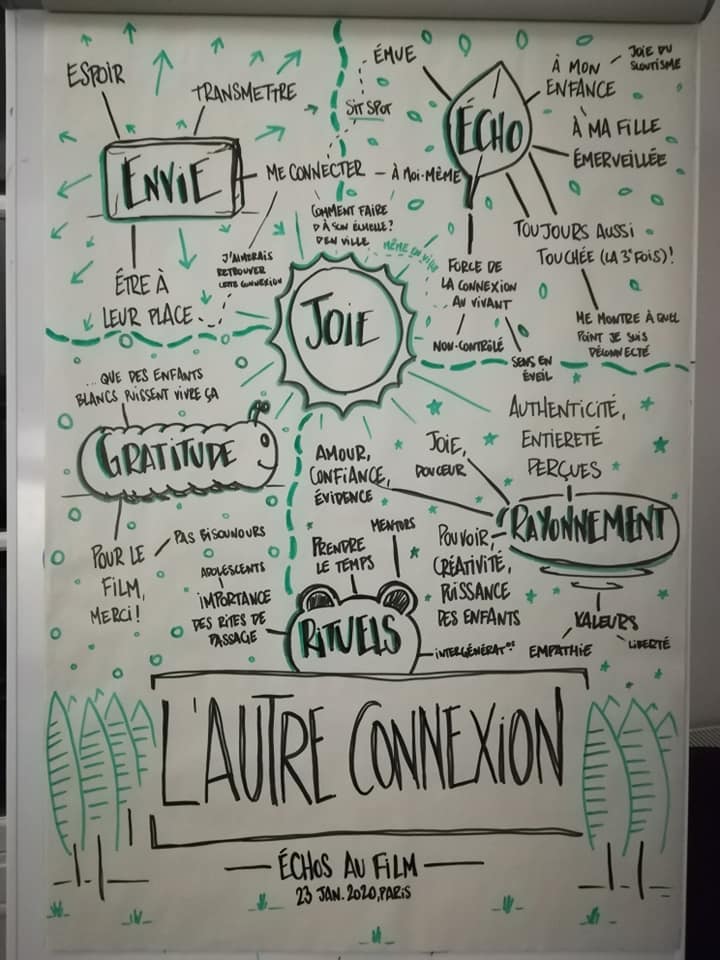 ESPOIR
TRANSMETTRE
ENVIE
ME CONNECTER – À MOI-MÊME
SIT SPOT
COMMENT FAIRE
ÇA À SON ÉCHELLE?
D'EN VILLE
MÊME EN VILLE
J'AIMERAIS
RETROUVER
CETTE CONNEXION
ÊTRE À
LEUR PLACE
ÉMUE
ÉCHO
À MON
ENFANCE
JOIE DU
SCOUTISME
À MA FILLE
ÉMERVEILLÉE
TOUJOURS AUSSI
TOUCHÉE (LA 3e FOIS)!
ME MONTRE À QUEL
POINT JE SUIS
DÉCONNECTÉ
FORCE DE
LA CONNEXION
AU VIVANT
NON-CONTRÔLÉ
SENS EN
ÉVEIL
JOIE
...QUE DES ENFANTS
BLANCS PUISSENT VIVRE ÇA
GRATITUDE
POUR LE
FILM,
MERCI!
PAS BISOUNOURS
AMOUR,
CONFIANCE,
ÉVIDENCE
JOIE,
DOUCEUR
AUTHENTICITÉ,
ENTIERETÉ
PERÇUES
RAYONNEMENT
POUVOIR,
CRÉATIVITÉ,
PUISSANCE
DES ENFANTS
VALEURS
EMPATHIE
LIBERTÉ
PRENDRE
LE TEMPS
MENTORS
ADOLESCENTS
IMPORTANCE
DES RITES DE
PASSAGE
RITUELS
INTERGÉNÉRATons
L'AUTRE CONNEXION
— ÉCHOS AU FILM —
23 JAN. 2020, PARIS